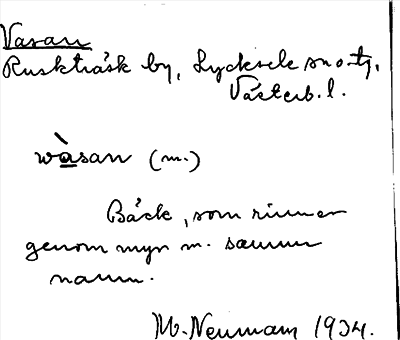 Vasan
Ruskträsk by, Lycksele sn o. tg,
Västerb. l.
wàsan (m.)
Bäck, som rinner
genom myr m. samma
namn.
M. Neuman 1934.